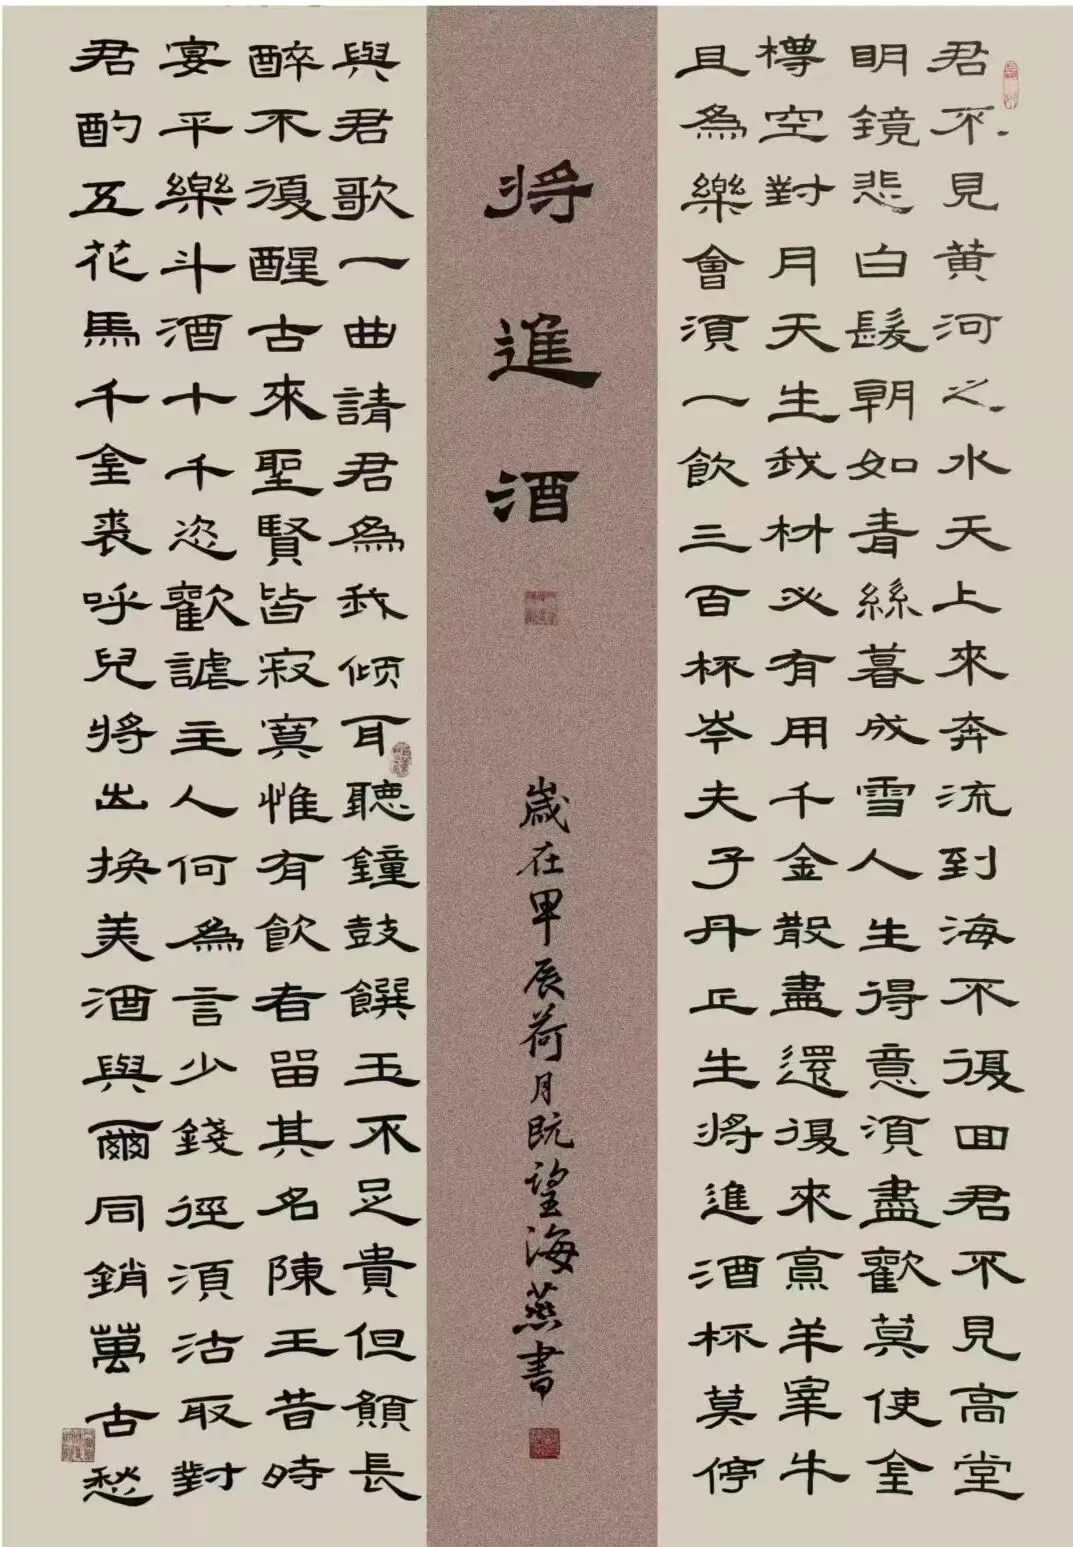 君不見黄河之水天上來奔流到海不復回君不見高堂
明鏡悲白髮朝如青絲暮成雪人生得意須盡歡莫使金
樽空對月天生我材必有用千金散盡還復來烹羊宰牛
且為樂會須一飲三百杯岑夫子丹丘生将進酒杯莫停
将進酒
歲在甲辰荷月既望海燕書
與君歌一曲請君為我傾耳聽鐘鼓饌玉不足貴但願長
醉不復醒古來聖賢皆寂寞惟有飲者留其名陳王昔時
宴平樂斗酒十千恣歡謔主人何為言少錢徑須沽取對
君酌五花馬千金裘呼兒将出換美酒與爾同銷萬古愁